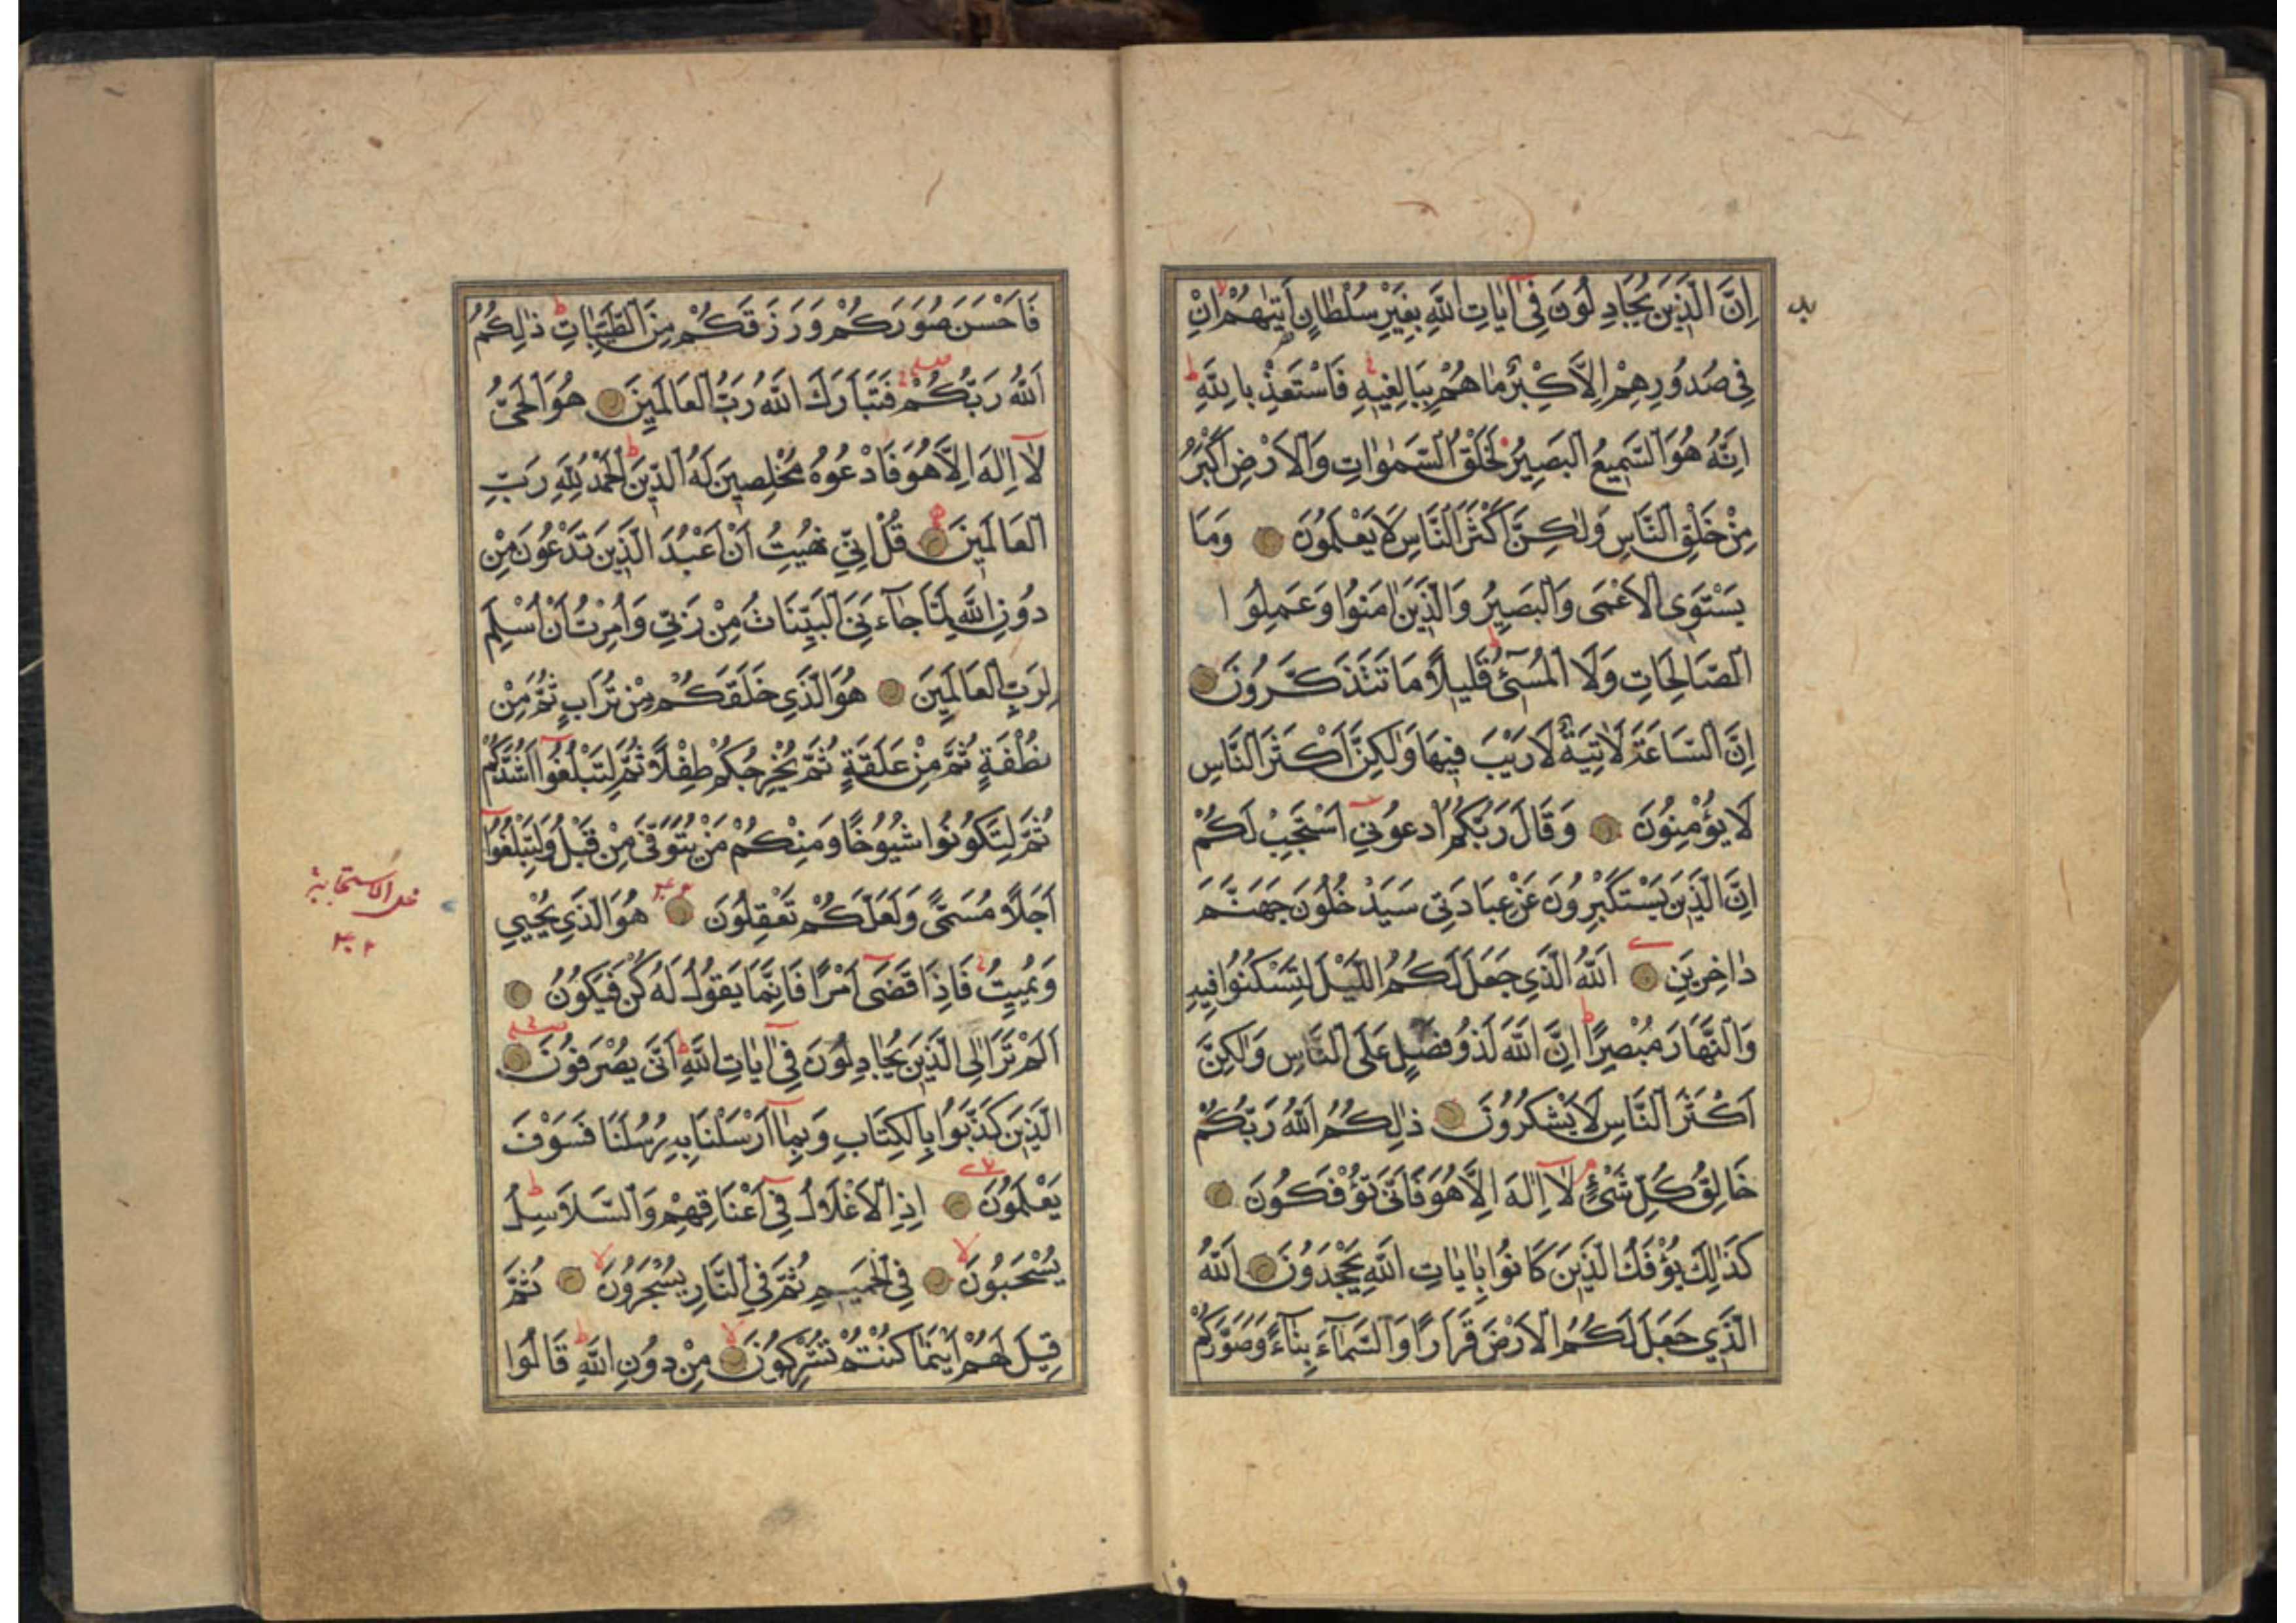 اِنَّ الَّذِينَ يُجَادِلُونَ فِىٓ اٰيَاتِ اللّٰهِ بِغَيْرِ سُلْطَانٍ اَتٰيهُمْ اِنْ
فِى صُدُورِهِمْ اِلَّا كِبْرٌ مَا هُمْ بِبَالِغِيهِ فَاسْتَعِذْ بِاللّٰهِ
اِنَّهُ هُوَ السَّمِيعُ الْبَصِيرُ لَخَلْقُ السَّمٰوَاتِ وَالْاَرْضِ اَكْبَرُ
مِنْ خَلْقِ النَّاسِ وَلٰكِنَّ اَكْثَرَ النَّاسِ لَا يَعْلَمُونَ وَمَا
يَسْتَوِى الْاَعْمٰى وَالْبَصِيرُ وَالَّذِينَ اٰمَنُوا وَعَمِلُوا
الصَّالِحَاتِ وَلَا الْمُسِىٓءُ قَلِيلًا مَا تَتَذَكَّرُونَ
اِنَّ السَّاعَةَ لَاٰتِيَةٌ لَا رَيْبَ فِيهَا وَلٰكِنَّ اَكْثَرَ النَّاسِ
لَا يُؤْمِنُونَ وَقَالَ رَبُّكُمُ ادْعُونِىٓ اَسْتَجِبْ لَكُمْ
اِنَّ الَّذِينَ يَسْتَكْبِرُونَ عَنْ عِبَادَتِى سَيَدْخُلُونَ جَهَنَّمَ
دَاخِرِينَ اَللّٰهُ الَّذِى جَعَلَ لَكُمُ اللَّيْلَ لِتَسْكُنُوا فِيهِ
وَالنَّهَارَ مُبْصِرًا اِنَّ اللّٰهَ لَذُو فَضْلٍ عَلَى النَّاسِ وَلٰكِنَّ
اَكْثَرَ النَّاسِ لَا يَشْكُرُونَ ذٰلِكُمُ اللّٰهُ رَبُّكُمْ
خَالِقُ كُلِّ شَىْءٍ لَآ اِلٰهَ اِلَّا هُوَ فَاَنّٰى تُؤْفَكُونَ
كَذٰلِكَ يُؤْفَكُ الَّذِينَ كَانُوا بِاٰيَاتِ اللّٰهِ يَجْحَدُونَ اَللّٰهُ
الَّذِى جَعَلَ لَكُمُ الْاَرْضَ قَرَارًا وَالسَّمَآءَ بِنَآءً وَصَوَّرَكُمْ
فَاَحْسَنَ صُوَرَكُمْ وَرَزَقَكُمْ مِنَ الطَّيِّبَاتِ ذٰلِكُمُ
اللّٰهُ رَبُّكُمْ فَتَبَارَكَ اللّٰهُ رَبُّ الْعَالَمِينَ هُوَ الْحَىُّ
لَآ اِلٰهَ اِلَّا هُوَ فَادْعُوهُ مُخْلِصِينَ لَهُ الدِّينَ اَلْحَمْدُ لِلّٰهِ رَبِّ
الْعَالَمِينَ قُلْ اِنِّى نُهِيتُ اَنْ اَعْبُدَ الَّذِينَ تَدْعُونَ مِنْ
دُونِ اللّٰهِ لَمَّا جَآءَنِىَ الْبَيِّنَاتُ مِنْ رَبِّى وَاُمِرْتُ اَنْ اُسْلِمَ
لِرَبِّ الْعَالَمِينَ هُوَ الَّذِى خَلَقَكُمْ مِنْ تُرَابٍ ثُمَّ مِنْ
نُطْفَةٍ ثُمَّ مِنْ عَلَقَةٍ ثُمَّ يُخْرِجُكُمْ طِفْلًا ثُمَّ لِتَبْلُغُوٓا اَشُدَّكُمْ
ثُمَّ لِتَكُونُوا شُيُوخًا وَمِنْكُمْ مَنْ يُتَوَفّٰى مِنْ قَبْلُ وَلِتَبْلُغُوٓا
اَجَلًا مُسَمًّى وَلَعَلَّكُمْ تَعْقِلُونَ هُوَ الَّذِى يُحْيِى
وَيُمِيتُ فَاِذَا قَضٰٓى اَمْرًا فَاِنَّمَا يَقُولُ لَهُ كُنْ فَيَكُونُ
اَلَمْ تَرَ اِلَى الَّذِينَ يُجَادِلُونَ فِىٓ اٰيَاتِ اللّٰهِ اَنّٰى يُصْرَفُونَ
الَّذِينَ كَذَّبُوا بِالْكِتَابِ وَبِمَآ اَرْسَلْنَا بِهِ رُسُلَنَا فَسَوْفَ
يَعْلَمُونَ اِذِ الْاَغْلَالُ فِىٓ اَعْنَاقِهِمْ وَالسَّلَاسِلُ
يُسْحَبُونَ فِى الْحَمِيمِ ثُمَّ فِى النَّارِ يُسْجَرُونَ ثُمَّ
قِيلَ لَهُمْ اَيْنَمَا كُنْتُمْ تُشْرِكُونَ مِنْ دُونِ اللّٰهِ قَالُوا